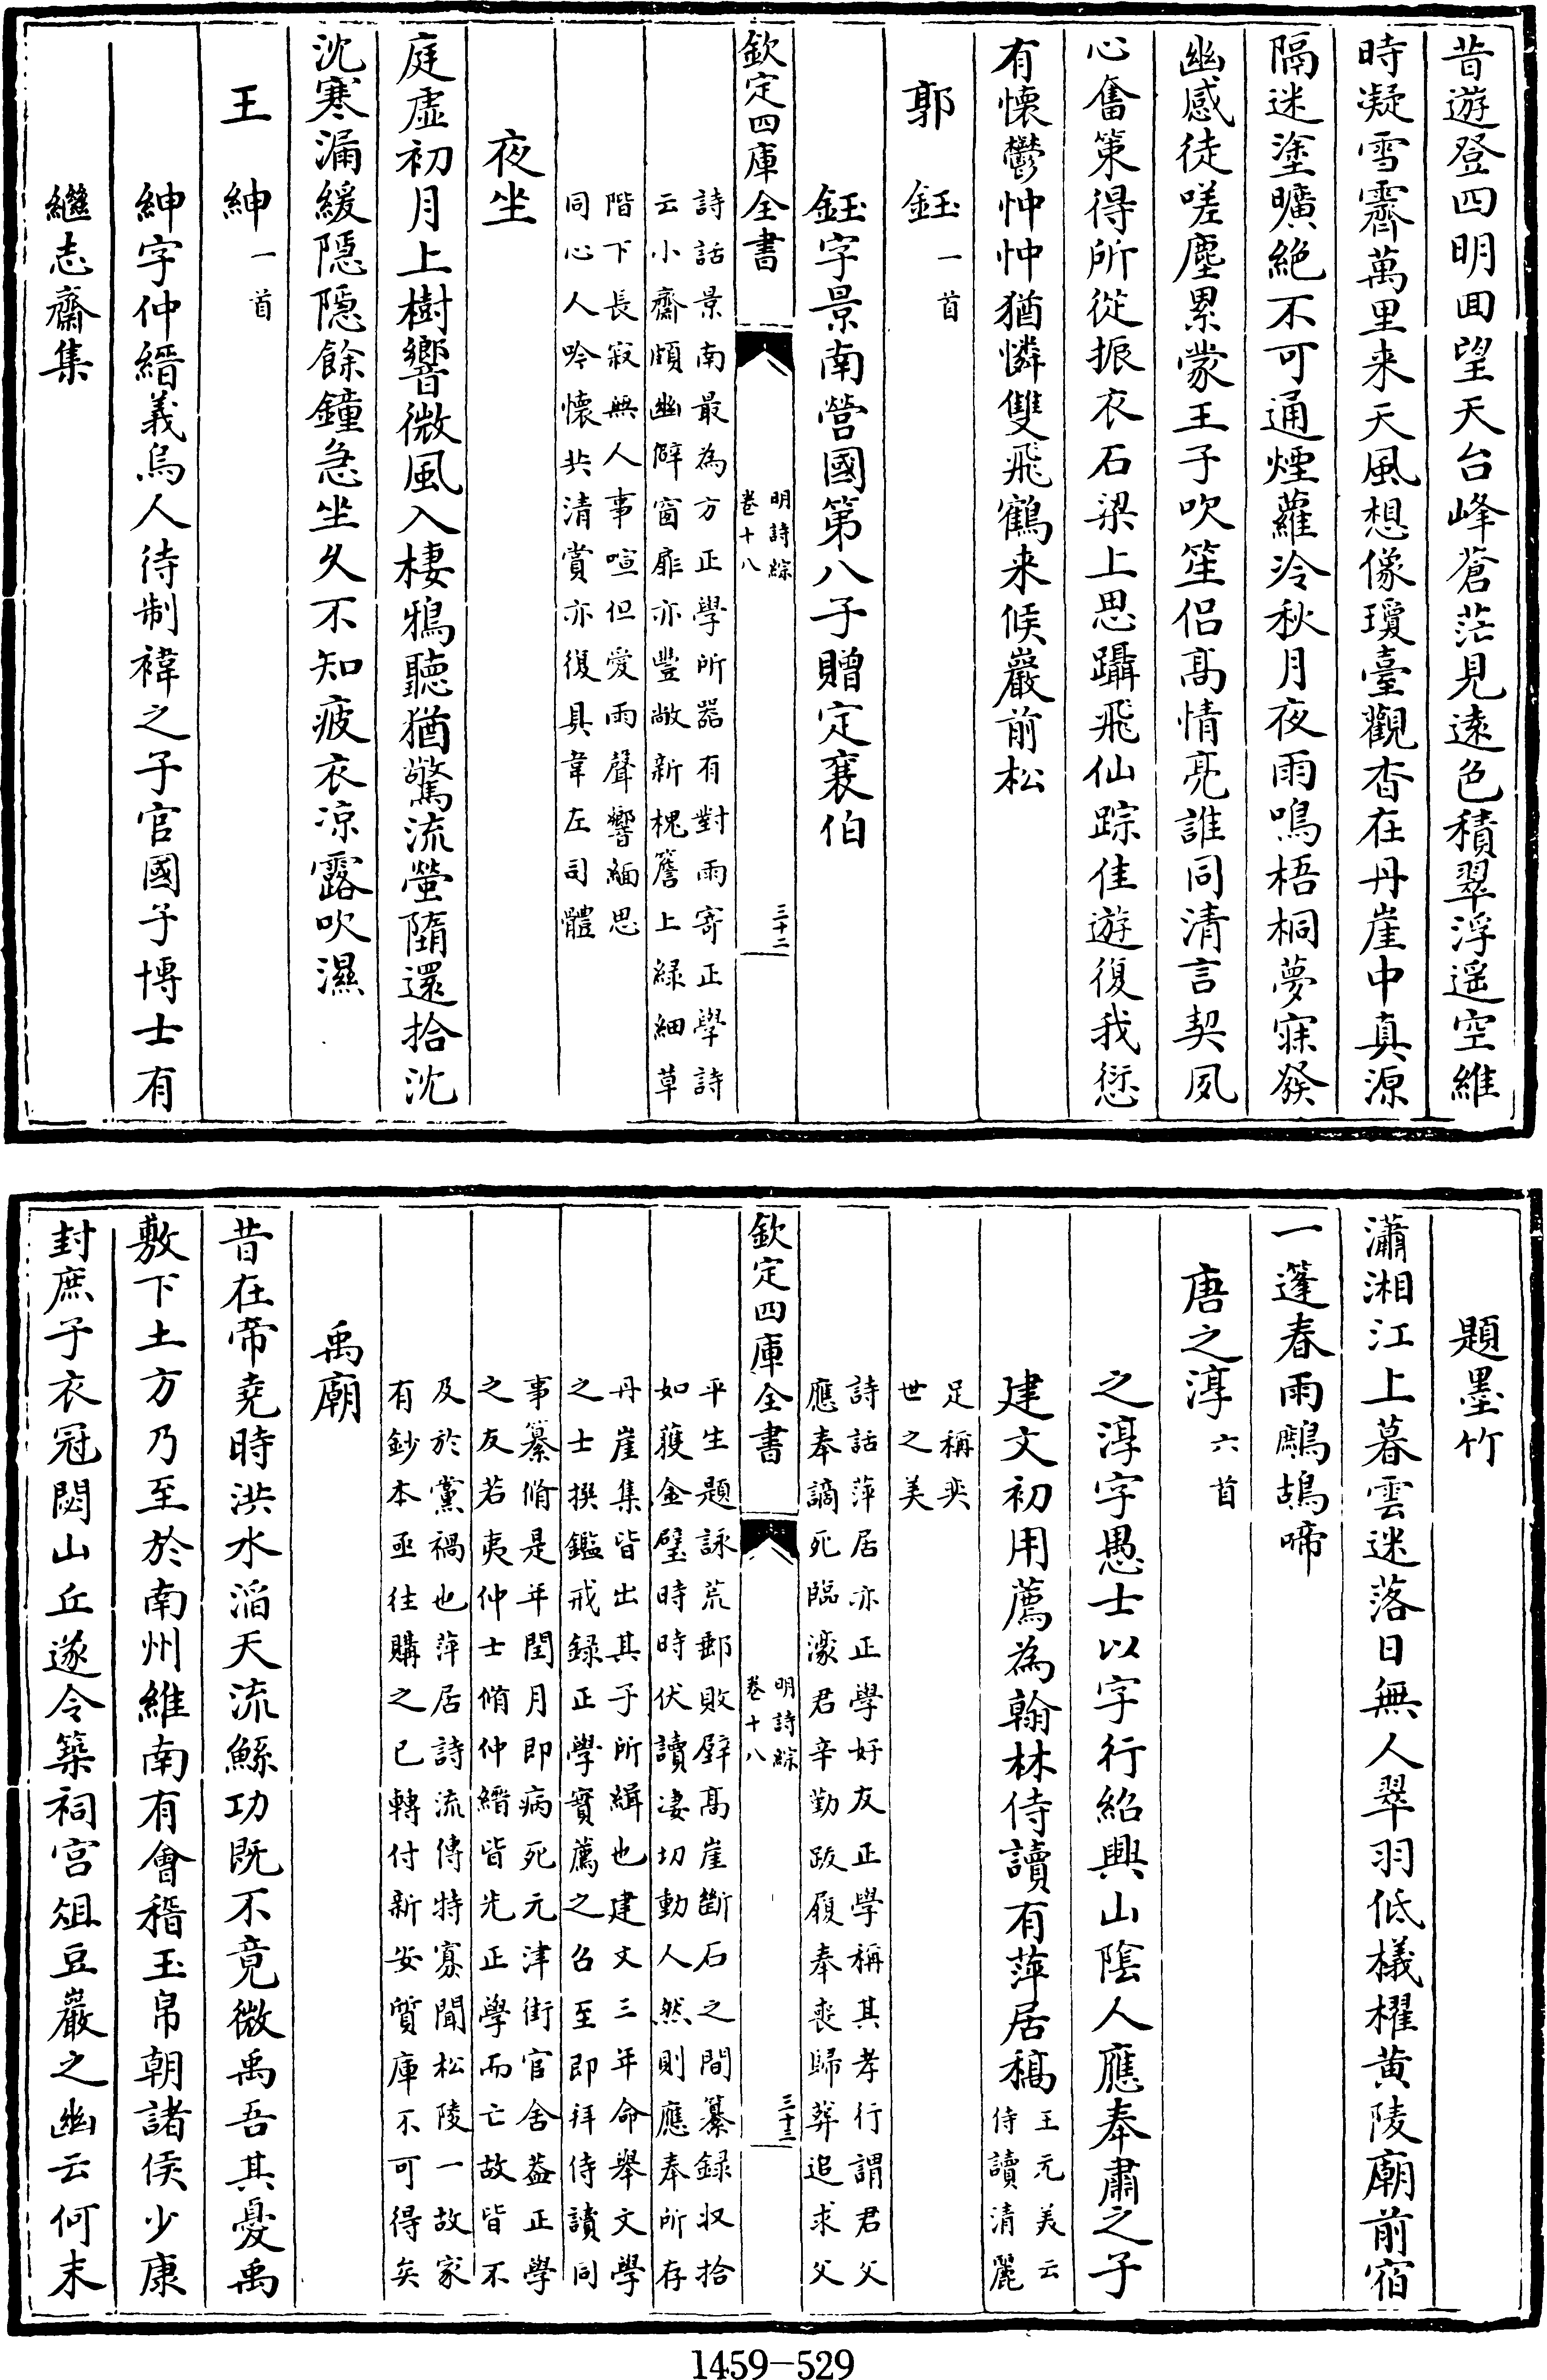 昔遊登四明囬望天台峰蒼茫見逺色積翠浮遥空維
時凝雪霽萬里来天風想像瓊臺觀杳在丹崖中真源
隔迷塗曠絶不可通煙蘿冷秋月夜雨鳴梧桐夢寐發
幽感徒嗟塵累蒙王子吹笙侣髙情亮誰同清言契夙
心奮策得所從振衣石梁上思躡飛仙踪佳遊復我愆
有懐鬱忡忡猶憐雙飛鶴来候巖前松
郭鈺一首
鈺字景南營國第八子贈定襄伯
欽定四庫全書
明詩綜
卷十八
三十二
詩話景南最為方正學所器有對雨寄正學詩
云小齋頗幽僻窗扉亦豐敞新槐簷上緑細草
階下長寂無人事喧但愛雨聲響緬思
同心人吟懐共清賞亦復具韋左司體
夜坐
庭虚初月上樹響微風入棲鴉聽猶驚流螢墮還拾沈
沈寒漏緩隠隠餘鐘急坐久不知疲衣凉露吹濕
王紳一首
紳字仲縉義烏人待制禕之子官國子博士有
繼志齋集
題墨竹
瀟湘江上暮雲迷落日無人翠羽低檥櫂黄陵廟前宿
一篷春雨鷓鴣啼
唐之淳六首
之淳字愚士以字行紹興山隂人應奉肅之子
建文初用薦為翰林侍讀有萍居稿王元美云
侍讀清麗
足稱奕
世之美
詩話萍居亦正學好友正學稱其孝行謂君父
應奉謫死臨濠君辛勤跋履奉喪歸葬追求父
欽定四庫全書
明詩綜
卷十八
三十三
平生題詠荒郵敗壁髙崖斷石之間纂録収拾
如獲金璧時時伏讀凄切動人然則應奉所存
丹崖集皆出其子所緝也建文三年命舉文學
之士撰鑑戒録正學實薦之召至即拜侍讀同
事纂脩是年閏月即病死元津街官舍葢正學
之友若夷仲士脩仲縉皆先正學而亡故皆不
及於黨禍也萍居詩流傳特寡聞松陵一故家
有鈔本亟往購之已轉付新安質庫不可得矣
禹廟
昔在帝堯時洪水滔天流鯀功既不竟微禹吾其憂禹
敷下土方乃至於南州維南有會稽玉帛朝諸侯少康
封庶子衣冠閟山丘遂令築祠宫俎豆嚴之幽云何末
1459-529